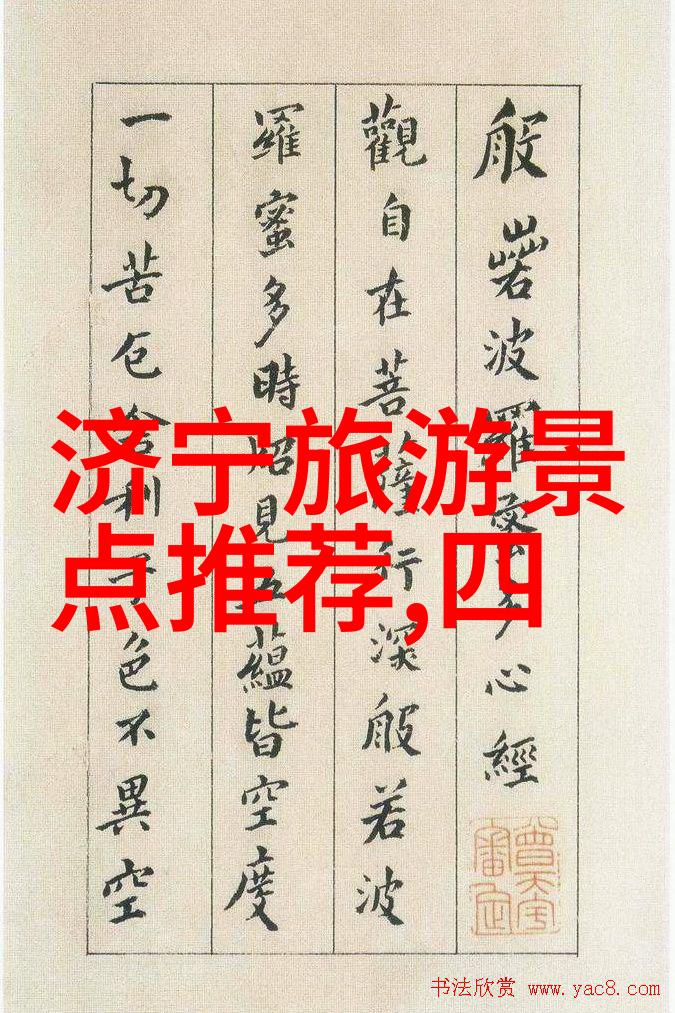 般若波羅蜜多心經
觀自在菩薩行深般若波
羅蜜多時照見五蘊皆空度
一切苦厄舍利子色不異空
济宁旅游景
点推荐,四
书法欣赏 www.yac8.com